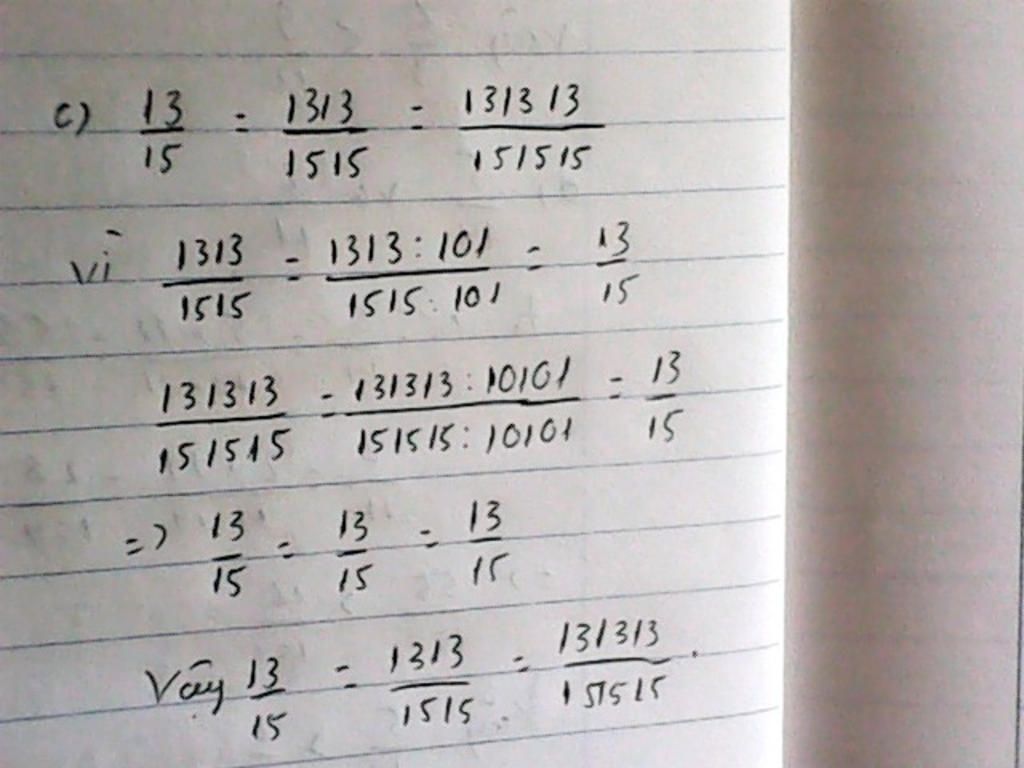 c) 13/15 = 1313/1515 = 131313/151515
Vì 1313/1515 = 1313:101/1515:101 = 13/15
131313/151515 = 131313:10101/151515:10101 = 13/15
=> 13/15 = 13/15 = 13/15
Vậy 13/15 = 1313/1515 = 131313/151515.